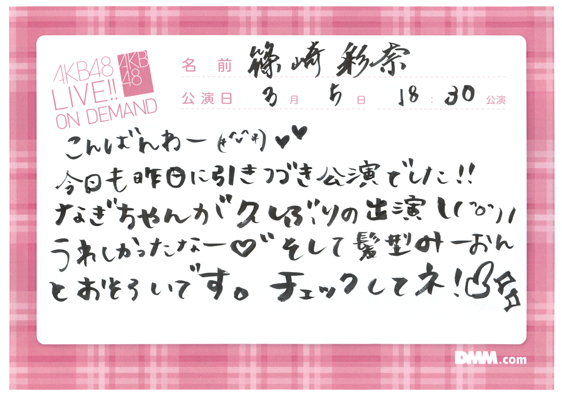 AKB48
LIVE!!
ON DEMAND
AKB
48
名 前 篠崎 彩奈
公演日 3 月 5 日 18 : 30 公演
こんばんわー (*^^*) ♥♥
今日も昨日に引きつづき公演でした!!
なぎちゃんが久しぶりの出演 \(^o^)/
うれしかったなー♡ そして髪型みーおん
とおそろいです。チェックしてネ!
DMM.com